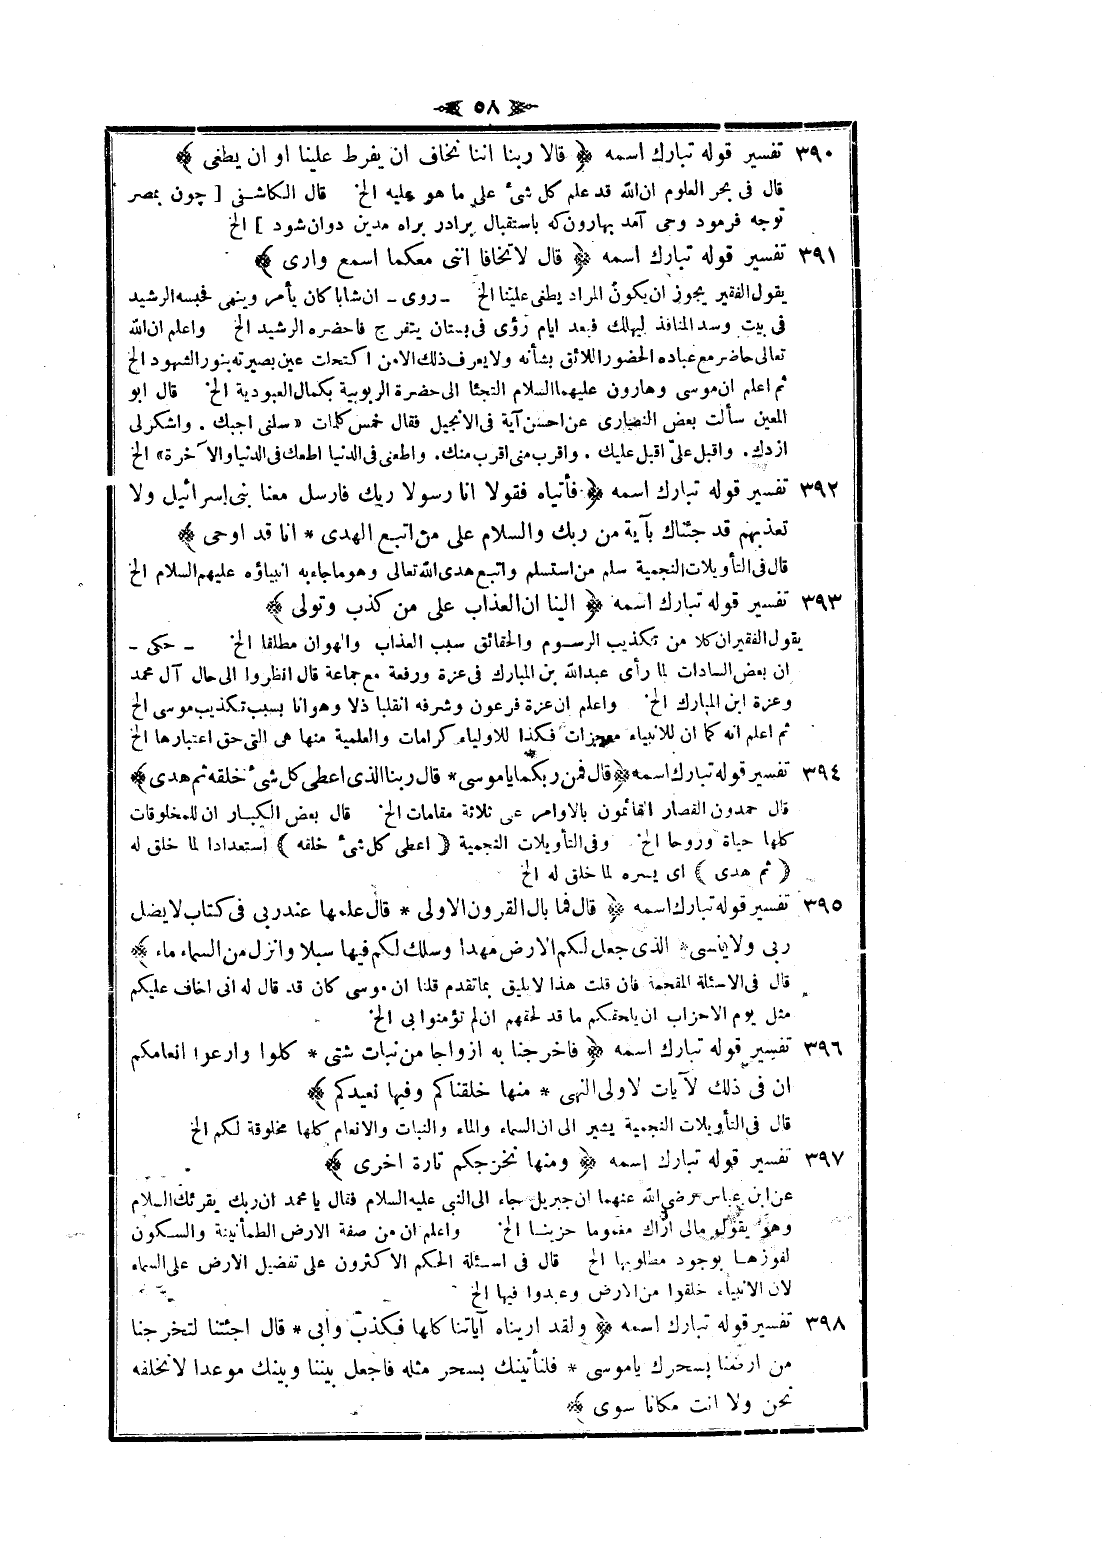 ٥٨
٣٩٠ تفسير قوله تبارك اسمه ﴿ قالا ربنا اننا نخاف ان يفرط علينا او ان يطغى ﴾
قال فى بحر العلوم ان الله قد علم كل شئ على ما هو عليه الخ قال الكاشفى [ چون بمصر
توجه فرمود وحى آمد بهارون كه باستقبال برادر براه مدين دوان شود ] الخ
٣٩١ تفسير قوله تبارك اسمه ﴿ قال لا تخافا اننى معكما اسمع وارى ﴾
يقول الفقير يجوز ان يكون المراد يطغى علينا الخ ـ روى ـ ان شابا كان يأمر وينهى فحبسه الرشيد
فى بيت وسد المنافذ ليهلك فبعد ايام رؤى فى بستان يتفرج فاحضره الرشيد الخ واعلم ان الله
تعالى حاضر مع عباده الحضور اللائق بشأنه ولا يعرف ذلك الا من اكتحلت عين بصيرته بنور الشهود الخ
ثم اعلم ان موسى وهارون عليهما السلام التجئا الى حضرة الربوبية بكمال العبودية الخ قال ابو
المعين سألت بعض النصارى عن احسن آية فى الانجيل فقال خمس كلمات «سلنى اجبك . واشكرلى
ازدك. واقبل علىّ اقبل عليك . واقرب منى اقرب منك. واطعنى فى الدنيا اطعك فى الدنيا والآخرة» الخ
٣٩٢ تفسير قوله تبارك اسمه ﴿ فأتياه فقولا انا رسولا ربك فارسل معنا بنى إسرائيل ولا
تعذبهم قد جئناك بآية من ربك والسلام على من اتبع الهدى * انا قد اوحى ﴾
قال فى التأويلات النجمية سلم من استسلم واتبع هدى الله تعالى وهو ما جاء به انبياؤه عليهم السلام الخ
٣٩٣ تفسير قوله تبارك اسمه ﴿ الينا ان العذاب على من كذب وتولى ﴾
يقول الفقير ان كلا من تكذيب الرسوم والحقائق سبب العذاب والهوان مطلقا الخ ـ حكى ـ
ان بعض السادات لما رأى عبدالله بن المبارك فى عزة ورفعة مع جماعة قال انظروا الى حال آل محمد
وعزة ابن المبارك الخ واعلم ان عزة فرعون وشرفه انقلبا ذلا وهوانا بسبب تكذيب موسى الخ
ثم اعلم انه كما ان للانبياء معجزات فكذا للاولياء كرامات والعلمية منها هى التى حق اعتبارها الخ
٣٩٤ تفسير قوله تبارك اسمه ﴿ قال فمن ربكما يا موسى * قال ربنا الذى اعطى كل شئ خلقه ثم هدى ﴾
قال حمدون القصار القائمون بالاوامر على ثلاثة مقامات الخ قال بعض الكبار ان للمخلوقات
كلها حياة وروحا الخ وفى التأويلات النجمية ( اعطى كل شئ خلقه ) استعدادا لما خلق له
( ثم هدى ) اى يسره لما خلق له الخ
٣٩٥ تفسير قوله تبارك اسمه ﴿ قال فما بال القرون الاولى * قال علمها عند ربى فى كتاب لا يضل
ربى ولا ينسى * الذى جعل لكم الارض مهدا وسلك لكم فيها سبلا وانزل من السماء ماء ﴾
قال فى الاسئلة المقحمة فان قلت هذا لا يليق بما تقدم قلنا ان موسى كان قد قال له انى اخاف عليكم
مثل يوم الاحزاب ان يلحقكم ما قد لحقهم ان لم تؤمنوا بى الخ
٣٩٦ تفسير قوله تبارك اسمه ﴿ فاخرجنا به ازواجا من نبات شتى * كلوا وارعوا انعامكم
ان فى ذلك لآيات لاولى النهى * منها خلقناكم وفيها نعيدكم ﴾
قال فى التأويلات النجمية يشير الى ان السماء والماء والنبات والانعام كلها مخلوقة لكم الخ
٣٩٧ تفسير قوله تبارك اسمه ﴿ ومنها نخرجكم تارة اخرى ﴾
عن ابن عباس رضى الله عنهما ان جبريل جاء الى النبى عليه السلام فقال يا محمد ان ربك يقرئك السلام
وهو يقول مالى اراك مغموما حزينا الخ واعلم ان من صفة الارض الطمأنينة والسكون
لفوزها بوجود مطلوبها الخ قال فى اسئلة الحكم الاكثرون على تفضيل الارض على السماء
لان الانبياء خلقوا من الارض وعبدوا فيها الخ
٣٩٨ تفسير قوله تبارك اسمه ﴿ ولقد اريناه آياتنا كلها فكذب وابى * قال اجئتنا لتخرجنا
من ارضنا بسحرك يا موسى * فلنأتينك بسحر مثله فاجعل بيننا وبينك موعدا لا نخلفه
نحن ولا انت مكانا سوى ﴾